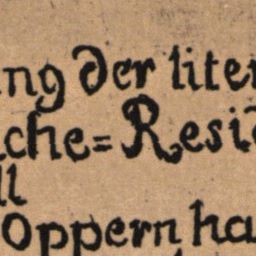 ng der liter
che=Resid
ll
Oppern ha